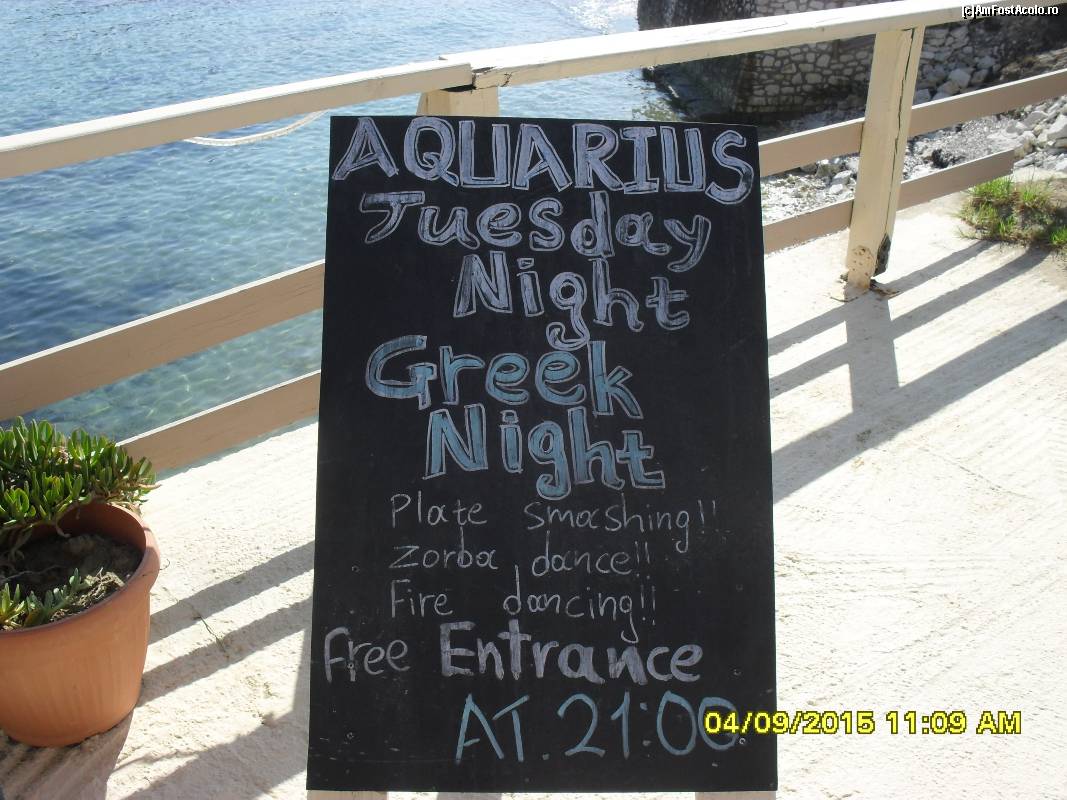 (c)AmFostAcolo.ro
AQUARIUS
Tuesday
Night
Greek
Night
Plate smashing!!
Zorba dance!!
Fire dancing!!
Free Entrance
AT. 21:00
04/09/2015 11:09 AM